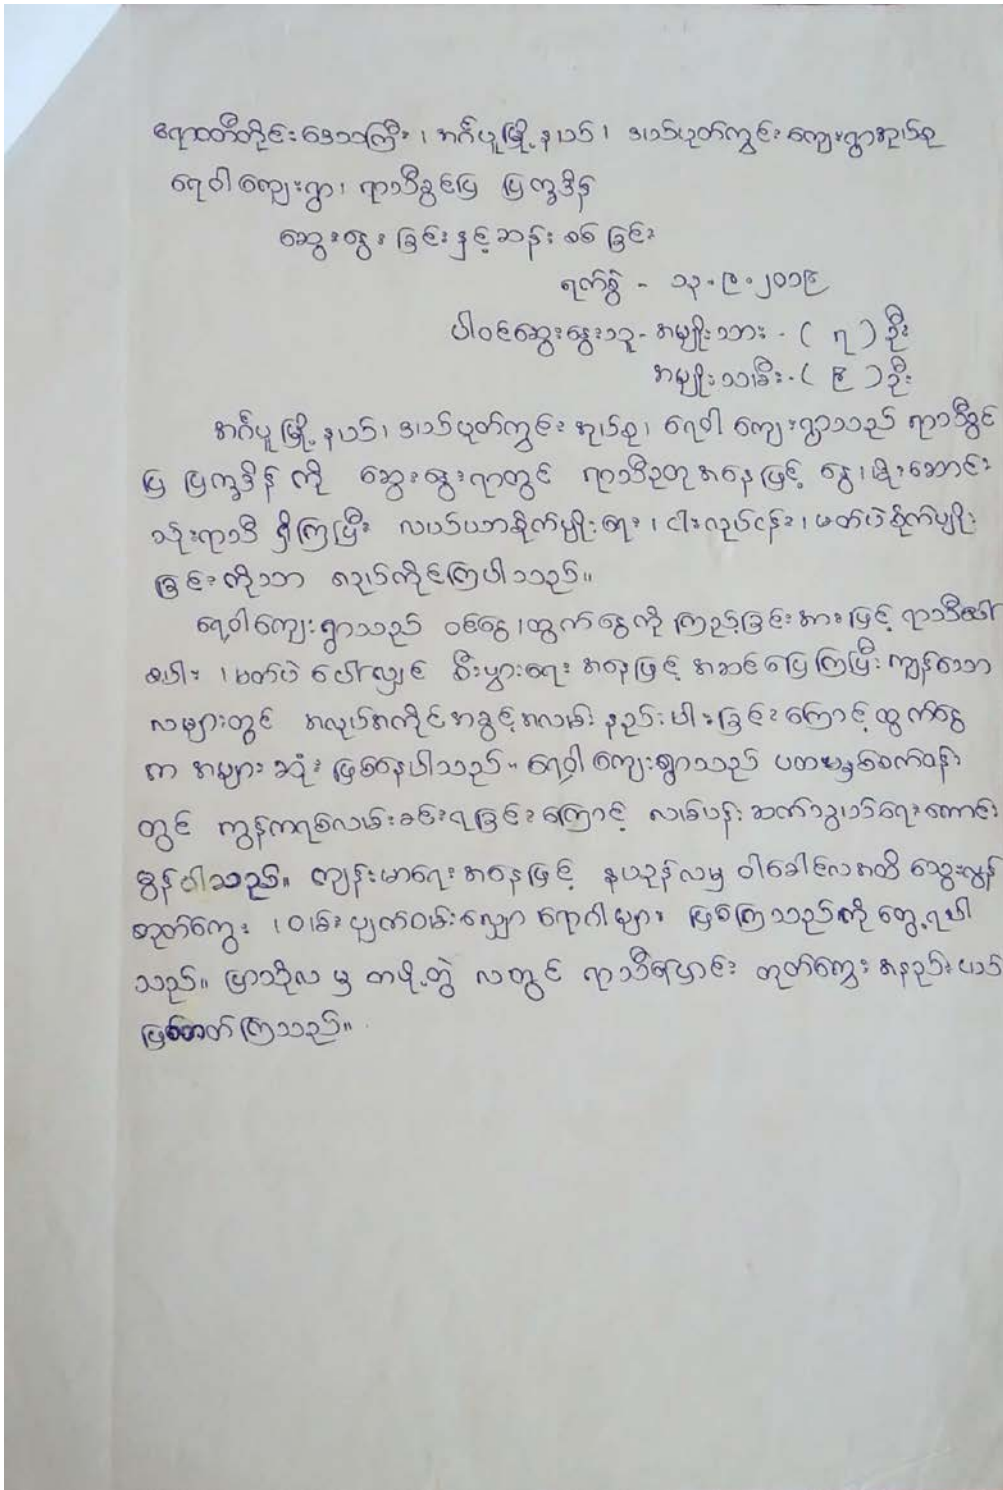 ဧရာဝတီတိုင်းဒေသကြီး၊ အင်္ဂပူမြို့နယ်၊ ဒယ်ပုတ်ကွင်းကျေးရွာအုပ်စု
ရေဝါကျေးရွာ၊ ရာသီခွင်ပြ ပြက္ခဒိန်
ဆွေးနွေးခြင်းနှင့်ဆန်းစစ်ခြင်း
ရက်စွဲ - ၁၃.၉.၂၀၁၉
ပါဝင်ဆွေးနွေးသူ - အမျိုးသား - ( ၇ ) ဦး
အမျိုးသမီး - ( ၉ ) ဦး
အင်္ဂပူမြို့နယ်၊ ဒယ်ပုတ်ကွင်းအုပ်စု၊ ရေဝါကျေးရွာသည် ရာသီခွင်
ပြ ပြက္ခဒိန်ကို ဆွေးနွေးရာတွင် ရာသီဥတုအနေဖြင့် နွေ၊ မိုး၊ ဆောင်း
သုံးရာသီ ရှိကြပြီး လယ်ယာစိုက်ပျိုးရေး၊ ငါးလုပ်ငန်း၊ မတ်ပဲစိုက်ပျိုး
ခြင်းကိုသာ လုပ်ကိုင်ကြပါသည်။
ရေဝါကျေးရွာသည် ဝင်ငွေ၊ ထွက်ငွေကို ကြည့်ခြင်းအားဖြင့် ရာသီပေါ်
စပါး၊ မတ်ပဲ ပေါ်လျှင် စီးပွားရေး အနေဖြင့် အဆင်ပြေကြပြီး ကျန်သော
လများတွင် အလုပ်အကိုင်အခွင့်အလမ်း နည်းပါးခြင်းကြောင့် ထွက်ငွေ
က အများဆုံး ဖြစ်နေပါသည်။ ရေဝါကျေးရွာသည် ပထမနှစ်ဝက်ခန့်
တွင် ကွန်ကရစ်လမ်းခင်းရခြင်းကြောင့် လမ်းပန်းဆက်သွယ်ရေးကောင်း
မွန်ပါသည်။ ကျန်းမာရေး အနေဖြင့် နယုန်လမှ ဝါခေါင်လအထိ သွေးလွန်
တုတ်ကွေး၊ ဝမ်းပျက်ဝမ်းလျှော ရောဂါများ ဖြစ်ကြသည်ကို တွေ့ရပါ
သည်။ ပြာသိုလမှ တပို့တွဲ လတွင် ရာသီပြောင်း တုတ်ကွေး အနည်းငယ်
ဖြစ်တတ်ကြသည်။